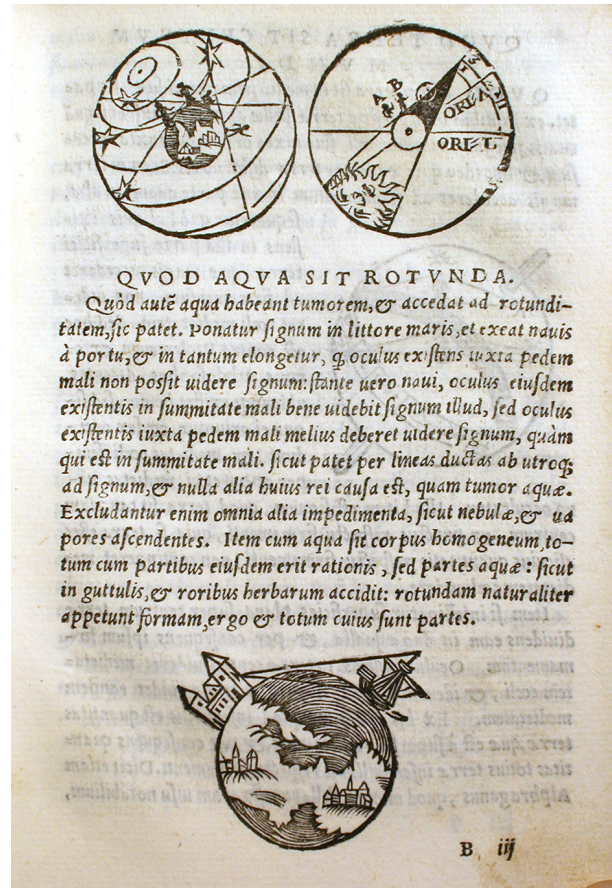 A B
ORIEA
ORIE L
QVOD AQVA SIT ROTVNDA.
Quòd autē aqua habeant tumorem, & accedat ad rotundi-
tatem, sic patet. Ponatur signum in littore maris, et exeat nauis
à portu, & in tantum elongetur, ꝙ oculus existens iuxta pedem
mali non possit uidere signum: stante uero naui, oculus eiusdem
existentis in summitate mali bene uidebit signum illud, sed oculus
existentis iuxta pedem mali melius deberet uidere signum, quàm
qui est in summitate mali. sicut patet per lineas ductas ab utroq;
ad signum, & nulla alia huius rei causa est, quam tumor aquæ.
Excludantur enim omnia alia impedimenta, sicut nebulæ, & ua
pores ascendentes. Item cum aqua sit corpus homogeneum, to-
tum cum partibus eiusdem erit rationis, sed partes aquæ: sicut
in guttulis, & roribus herbarum accidit: rotundam naturaliter
appetunt formam, ergo & totum cuius sunt partes.
B iij